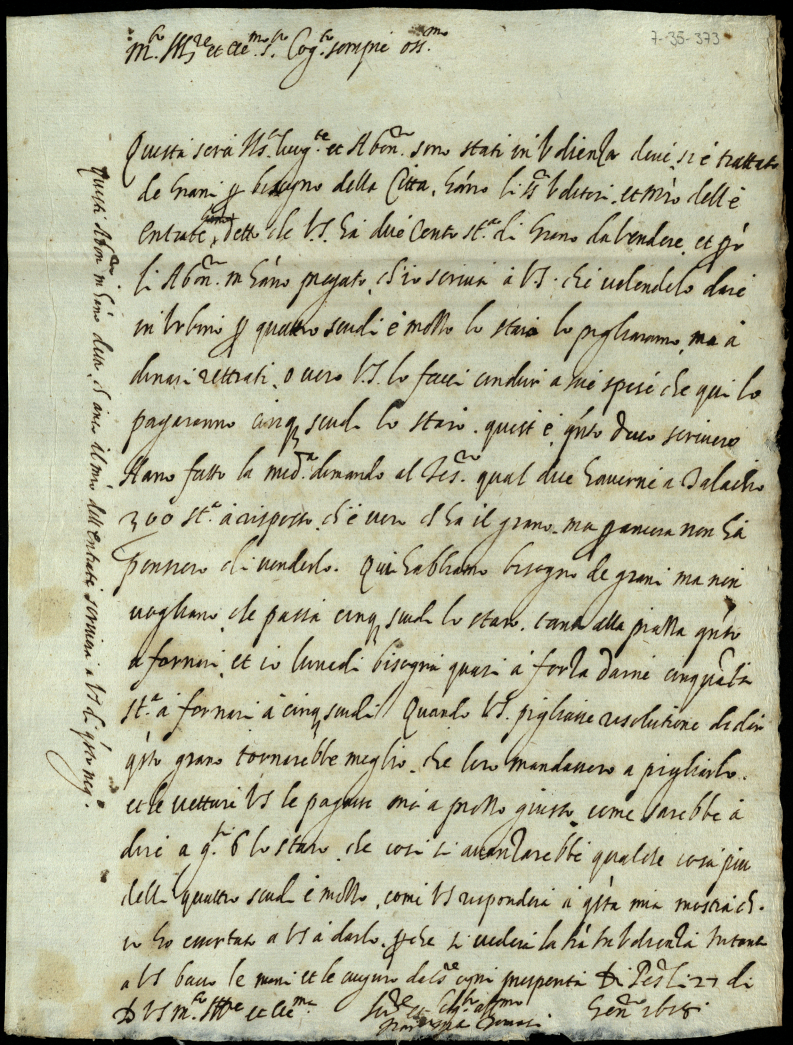 7-35-373
m.to Ill.re et ecc.mo s.r Cog.to sempre oss.mo
Questa sera Ms. luog.te et Abon.ri sono stati in Udienza dove si è trattato
de Grani p bisogno della Città, hanno li ss.ri Uditori, et m.ro dell'è
entrate detto che V.S. hà due cento st.a di Grano da vendere, et p.ò
li Abon.ri m'hanno pregato, ch'io scriva à VS. che volendolo dare
in Urbino p quattro scudi è mezzo lo staro lo pigliaranno, ma à
denari rettrati, o vero V.S. lo facci condur a sue spese che qui lo
pagaranno cinq, scudi lo staro. questi è, q.nto devo scrivere
Hano fatto la med.a dimanda al Tes.ro qual dice haverne a Palazzo
300 st.a à risposto, ch'è vero ch'ha il grano, ma p ancora non hà
pensiero di venderlo. Qui habbiamo bisogno de grani ma non
vogliano, che passi cinq, scudi lo staro, tanto alla piazza q.nto
a fornari, et io lunedì bisogna quasi à forza darne cinquanta
st.a à fornari à cinq, scudi. Quando V.S. pigliasse resolutione di dar
q.sto grano tornarebbe meglio, che loro mandassero a pigliarlo.
et le vetture VS le pagasse ma a prezzo giusto, come sarebbe à
dire a g.i 6 lo staro, che così si avanzarebbe qualche cosa più
delli quattro scudi è mezzo, come VS responderà à q.sta mia mostri ch.
io ho esortato a VS à darlo, p che si vederà la trà in Udienza Intanto
a VS bacio le mani et le auguro dal S.re ogni prosperità Di Pes.o li 27 di
D VS m.to Ill.re et ecc.ma Ser.re et Cog.to aff.mo Gen.ro 1618
Questi Abon.ri m'hano detto, ch'anco il m.ro dell'Entrate scriva a VS di q.sto neg.o